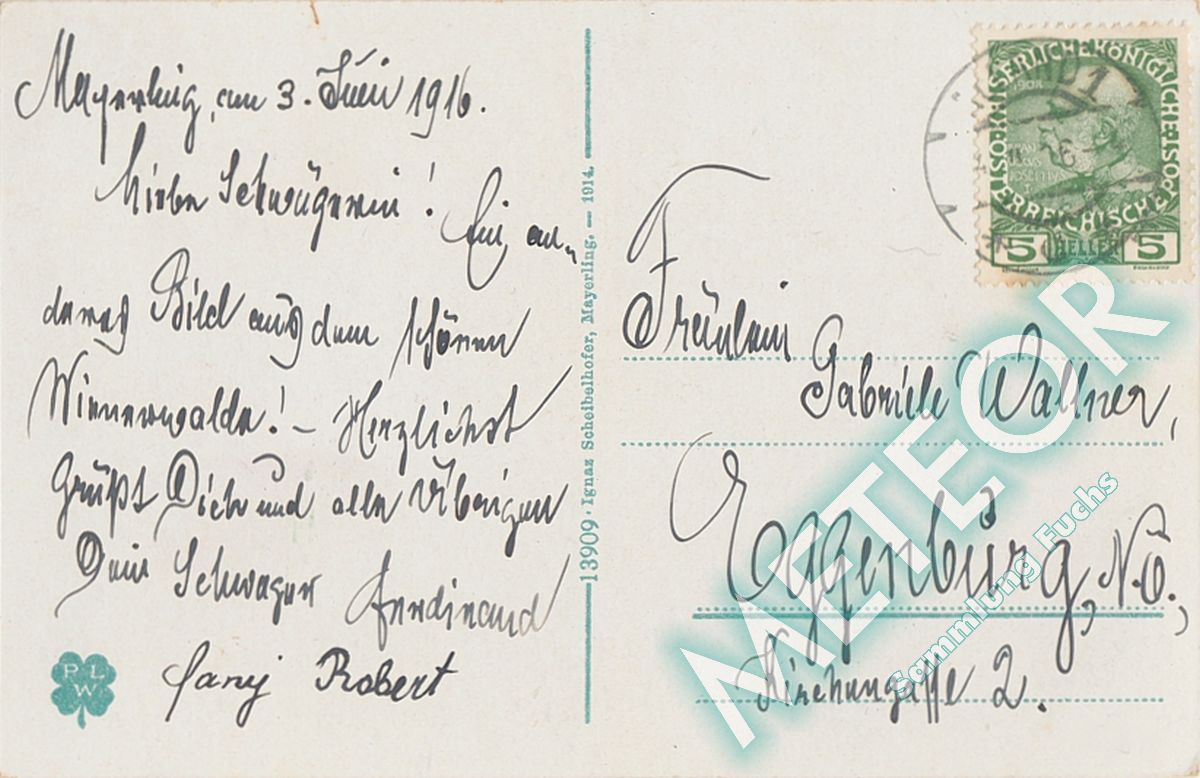 Mayerling, am 3. Juni 1916.
Liebe Schwägerin!
Ein an-
deres Bild aus dem schönen
Wienerwalde! – Herzlichst
Grüßt Dich und alle Übrigen
Dein Schwager Ferdinand
Fany Robert
PLW
13909 · Ignaz Scheibelhofer, Mayerling. — 1914.
KAISERLICHE KÖNIGLICHE ÖSTERREICHISCHE POST
5 HELLER 5
Fräulein
Gabriele Wallner,
Eggenburg, N.Ö.,
Kirchengasse 2.
METEOR
Sammlung Fuchs